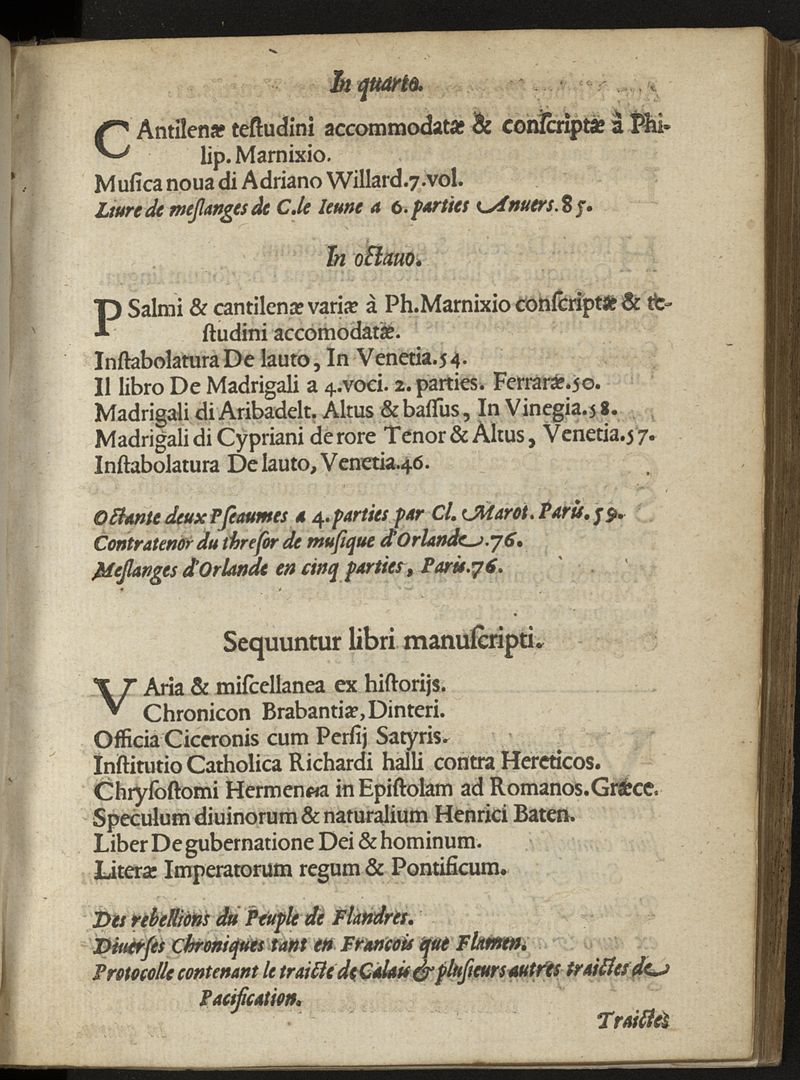 In quarto.
CAntilenæ teſtudini accommodatæ & conſcriptæ à Phi-
lip. Marnixio.
Muſica noua di Adriano Willard.7.vol.
Liure de meſlanges de C.le Ieune a 6.parties Anuers.85.
In octauo.
PSalmi & cantilenæ variæ à Ph.Marnixio conſcriptæ & te-
ſtudini accomodatæ.
Inſtabolatura De lauto, In Venetia.54.
Il libro De Madrigali a 4.voci. 2. parties. Ferraræ.50.
Madrigali di Aribadelt. Altus & baſſus, In Vinegia.58.
Madrigali di Cypriani de rore Tenor & Altus, Venetia.57.
Inſtabolatura De lauto, Venetia.46.
Octante deux Pſeaumes a 4.parties par Cl. Marot. Paris.59.
Contratenor du threſor de muſique d'Orlande.76.
Meſlanges d'Orlande en cinq parties, Paris.76.
Sequuntur libri manuſcripti.
VAria & miſcellanea ex hiſtorijs.
Chronicon Brabantiæ, Dinteri.
Officia Ciceronis cum Perſij Satyris.
Inſtitutio Catholica Richardi halli contra Hereticos.
Chryſoſtomi Hermeneia in Epiſtolam ad Romanos.Græce.
Speculum diuinorum & naturalium Henrici Baten.
Liber De gubernatione Dei & hominum.
Literæ Imperatorum regum & Pontificum.
Des rebellions du Peuple de Flandres.
Diuerſes Chroniques tant en Francois que Flamen.
Protocolle contenant le traicte de Calais & pluſieurs autres traictes de
Pacification.
Traictes